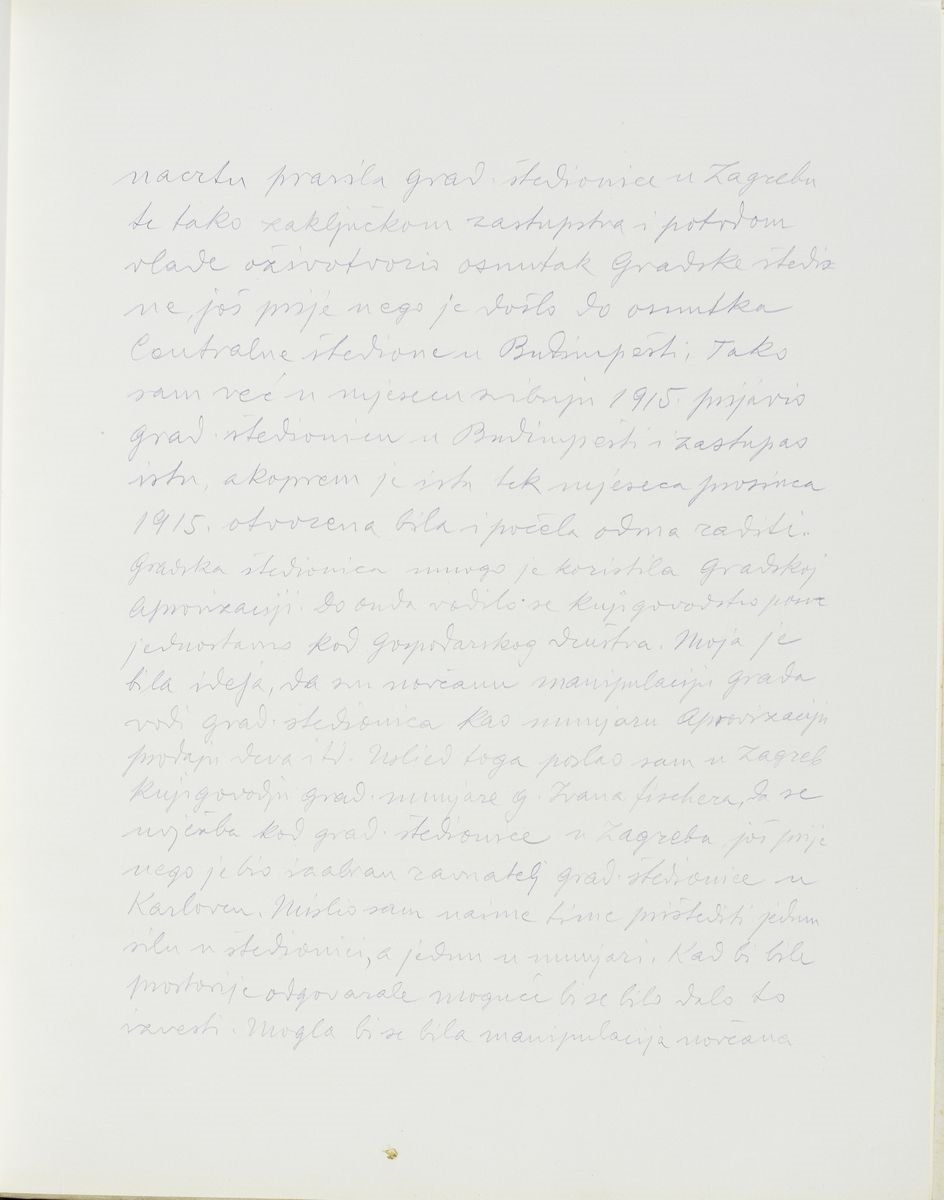 nacrtu pravila grad. štedionice u Zagrebu
te tako zaključkom zastupstva i potvrdom
vlade oživotvorio osnutak Gradske štedio=
ne, još prije nego je došlo do osnutka
Centralne štedione u Budimpešti. Tako
sam već u mjesecu svibnju 1915. prijavio
grad. štedionicu u Budimpešti i zastupao
istu, akoprem je ista tek mjeseca prosinca
1915. otvorena bila i počela odma raditi.
Gradska štedionica mnogo je koristila Gradskoj
Aprovizaciji. Do onda vodilo se knjigovodstvo posve
jednostavno kod Gospodarskog društva. Moja je
bila ideja, da svu novčanu manipulaciju grada
vodi grad. štedionica kao munjaru Aprovizaciju
prodaju drva itd. Uslied toga poslao sam u Zagreb
knjigovodju grad. munjare g. Ivana Fischera, da se
uvježba kod grad. štedionice u Zagrebu, još prije
nego je bio izabran ravnatelj grad. štedionice u
Karlovcu. Mislio sam naime time prištediti jednu
silu u štedionici, a jednu u munjari. Kad bi bile
prostorije odgovarale moguće bi se bilo dalo to
izvesti. Mogla bi se bila manipulacija novčana